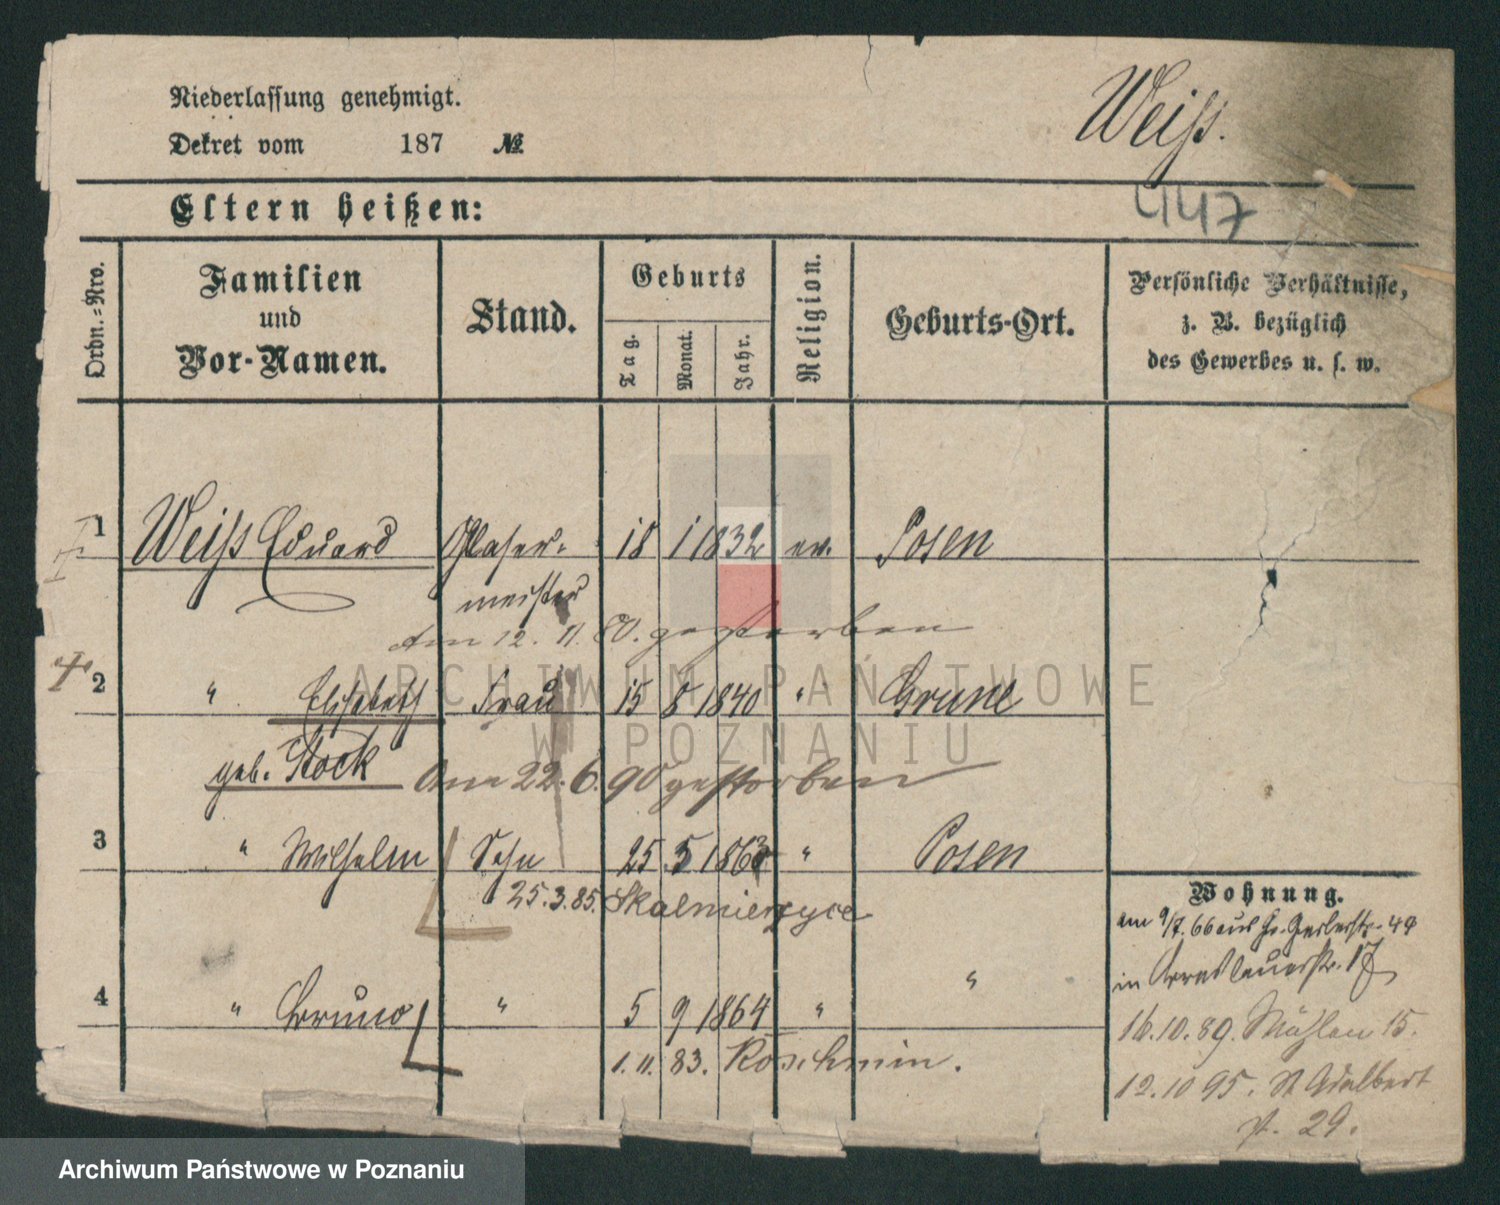 Niederlassung genehmigt.
Weiß.
Dekret vom 187 №
447
Eltern heißen:
Ordn.-Nro.
Familien und Vor-Namen.
Stand.
Geburts
Tag.
Monat.
Jahr.
Religion.
Geburts-Ort.
Persönliche Verhältnisse,
z. B. bezüglich
des Gewerbes u. s. w.
1 Weiß Eduard Glaser- 18 1 1832 ev. Posen
meister
Am 12. 11. 80. gestorben
2 " Elisabeth Frau 15 8 1840 " Grune
geb. Stock Am 22. 6. 90 gestorben
3 " Wilhelm Sohn 25 5 1863 " Posen
25.3.85. Skalmierzyce
4 " Bruno " 5 9 1864 " "
1. 11. 83. Koschmin.
Wohnung.
am 9/7. 66 aus Gr. Gerberstr. 49
in Breslauerstr. 17
16.10.89. Mühlen 15.
12.10 95. St Adalbert
st. 29.
ARCHIWUM PAŃSTWOWE
W POZNANIU
Archiwum Państwowe w Poznaniu